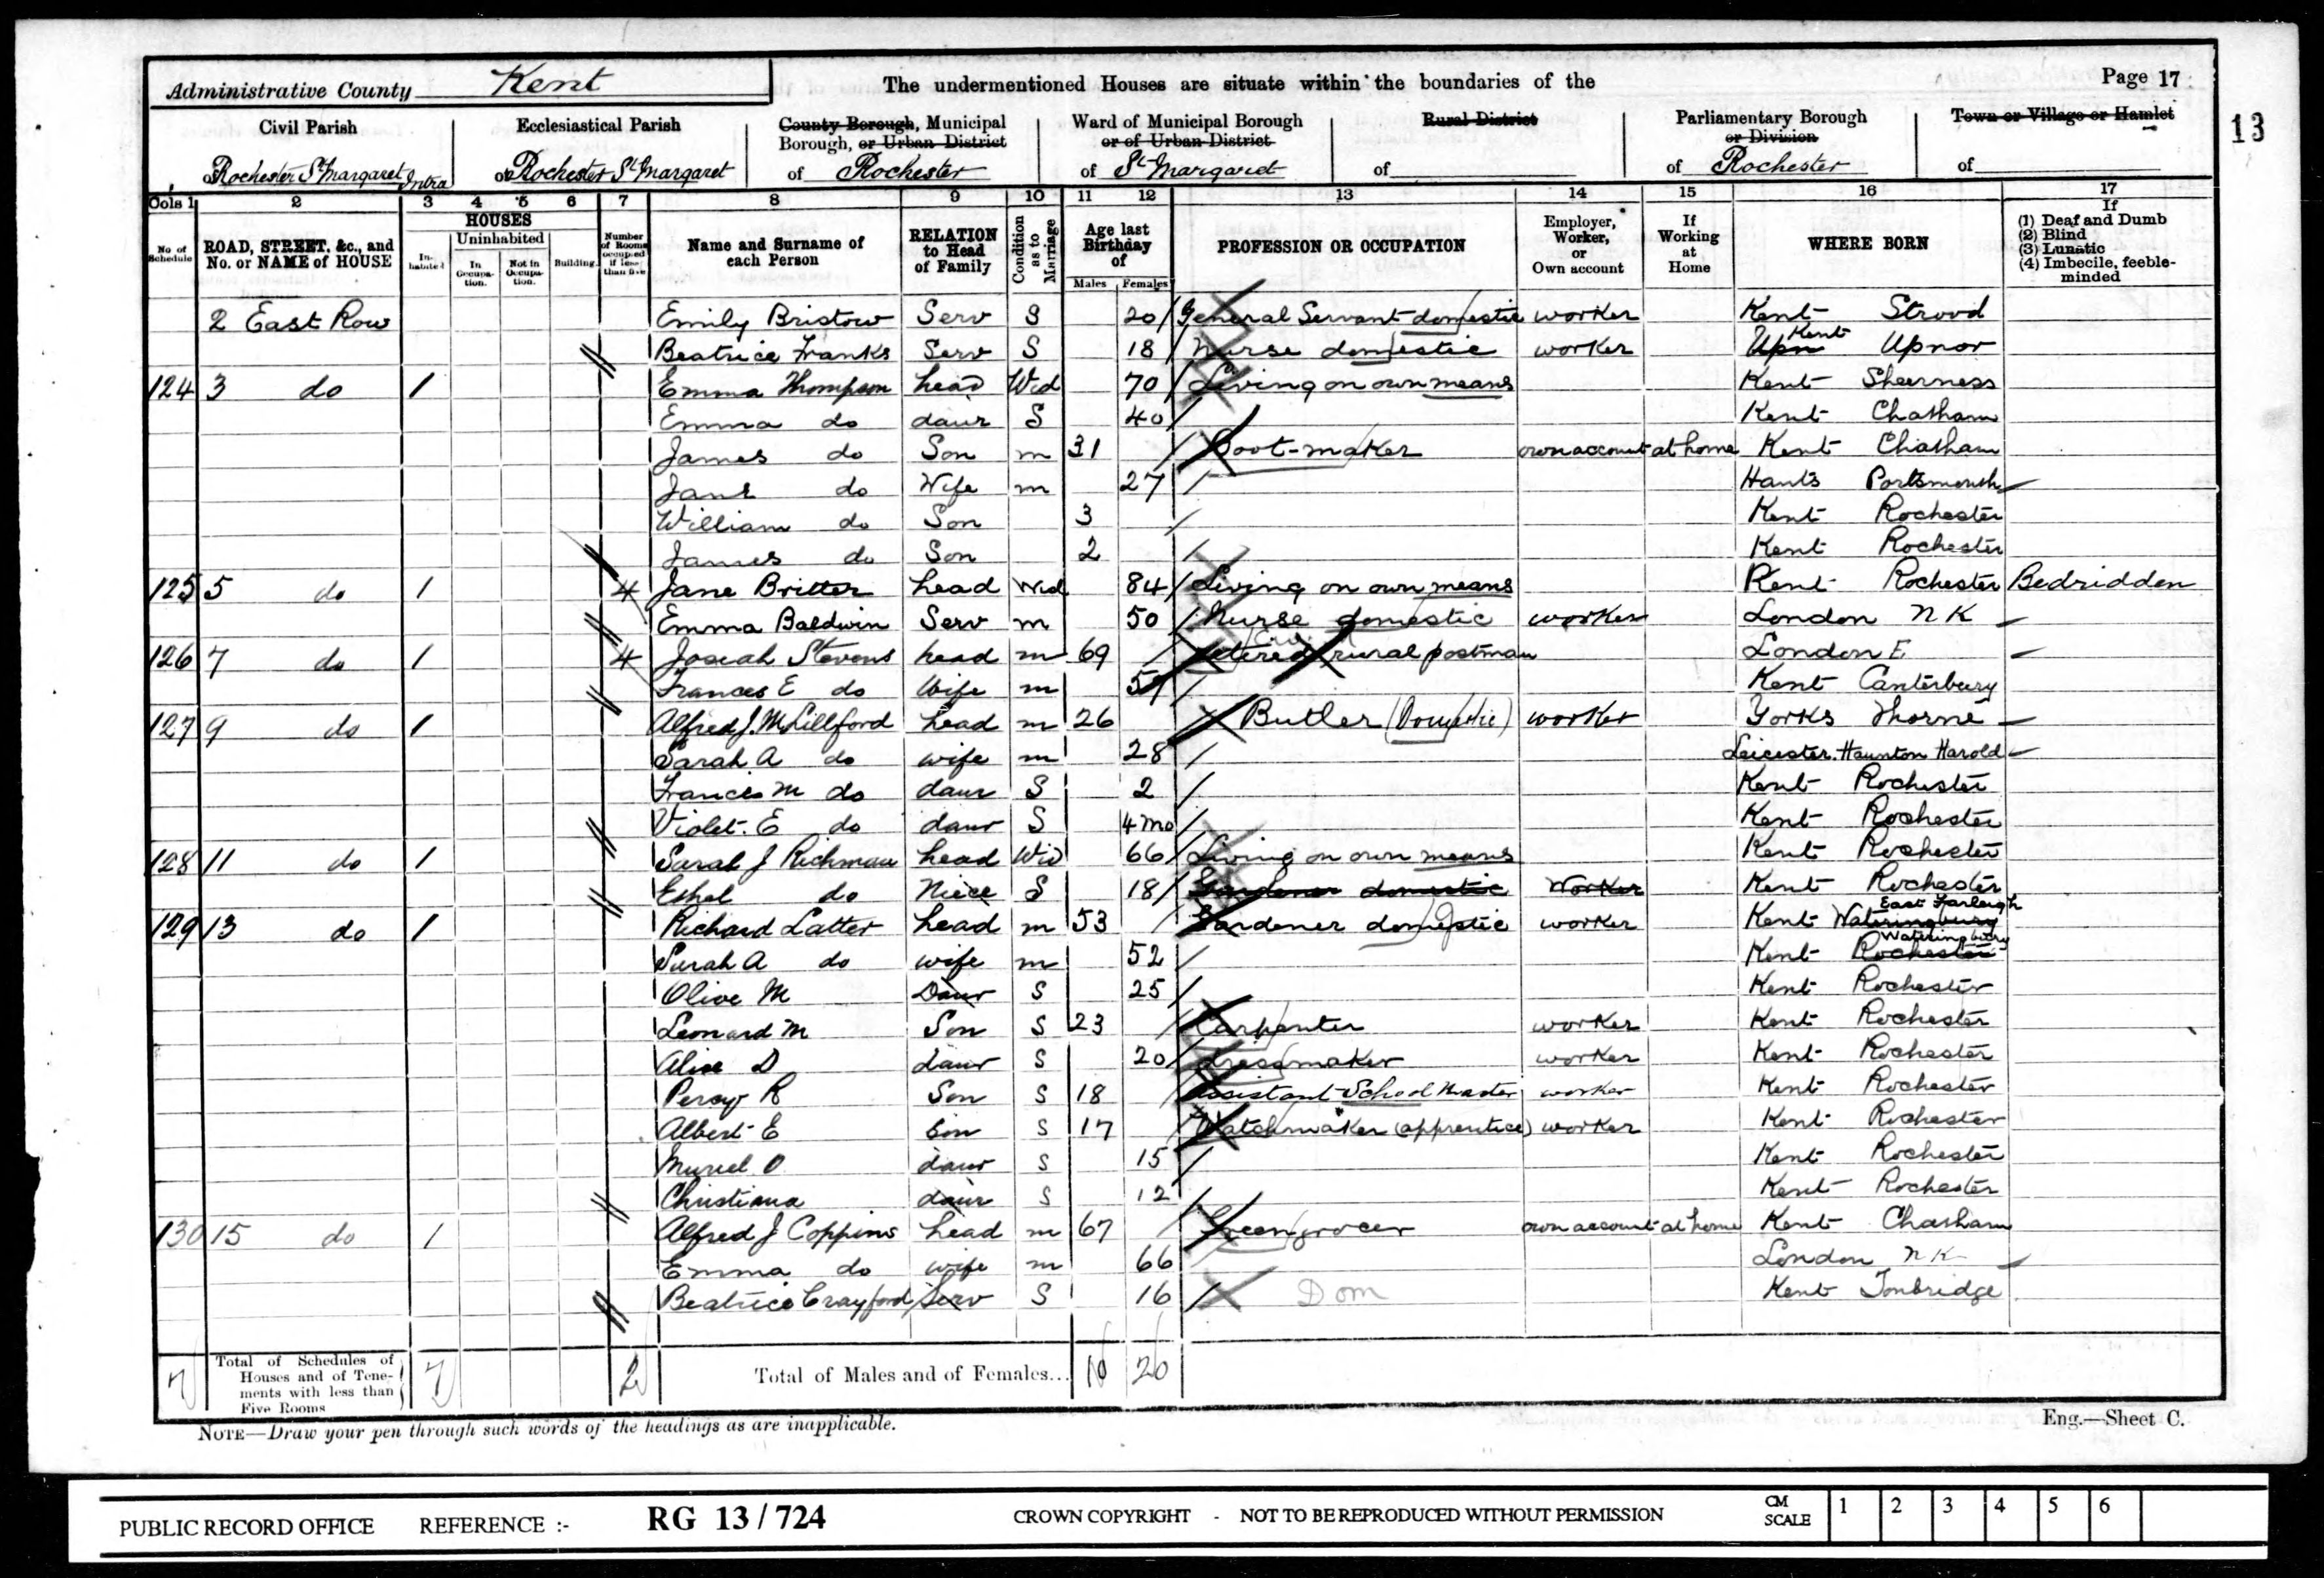 Administrative County Kent The undermentioned Houses are situate within the boundaries of the Page 17
13
Civil Parish Ecclesiastical Parish County Borough, Municipal Borough, or Urban District Ward of Municipal Borough or of Urban District Rural District Parliamentary Borough or Division Town or Village or Hamlet
of Rochester St Margaret Intra of Rochester St Margaret of Rochester of St Margaret of of Rochester of
Cols 1 2 3 4 5 6 7 8 9 10 11 12 13 14 15 16 17
No of Schedule ROAD, STREET, &c., and No. or NAME of HOUSE HOUSES Inhabited Uninhabited In Occupation. Not in Occupation. Building. Number of Rooms occupied if less than five Name and Surname of each Person RELATION to Head of Family Condition as to Marriage Age last Birthday of Males Females PROFESSION OR OCCUPATION Employer, Worker, or Own account If Working at Home WHERE BORN If (1) Deaf and Dumb (2) Blind (3) Lunatic (4) Imbecile, feeble-minded
2 East Row Emily Bristow Serv S 20 General Servant domestic worker Kent Strood
Beatrice Franks Serv S 18 Nurse domestic worker Upn Kent Upnor
124 3 do 1 Emma Thompson head Wid 70 Living on own means Kent Sheerness
Emma do daur S 40 Kent Chatham
James do Son m 31 Boot-maker own account at home Kent Chatham
Jane do Wife m 27 Hants Portsmouth
William do Son 3 Kent Rochester
James do Son 2 Kent Rochester
125 5 do 1 4 Jane Britter head Wid 84 Living on own means Kent Rochester Bedridden
Emma Baldwin Serv m 50 Nurse domestic worker London N K
126 7 do 1 4 Josiah Stevens head m 69 rural postman London E
Frances E do Wife m Kent Canterbury
127 9 do 1 Alfred J. M. Lillford head m 26 Butler (Domestic) worker Yorks Thorne
Sarah A do wife m 28 Leicester. Haunton Harold
Frances M do daur S 2 Kent Rochester
Violet. E do daur S 4 mo Kent Rochester
128 11 do 1 Sarah J Richman head Wid 66 Living on own means Kent Rochester
Ethel do Niece S 18 Gardener domestic Worker Kent Rochester
129 13 do 1 Richard Latter head m 53 Gardener domestic worker Kent Wateringbury East Farleigh
Sarah A do wife m 52 Kent Rochester Wateringbury
Olive M Daur S 25 Kent Rochester
Leonard M Son S 23 Carpenter worker Kent Rochester
Alice D daur S 20 Dressmaker worker Kent Rochester
Percy R Son S 18 Assistant School Master worker Kent Rochester
Albert E Son S 17 Watchmaker (apprentice) worker Kent Rochester
Muriel O daur S 15 Kent Rochester
Christiana daur S 12 Kent Rochester
130 15 do 1 Alfred J Coppins head m 67 Greengrocer own account at home Kent Chatham
Emma do wife m 66 London N K
Beatrice Crayford Serv S 16 Dom Kent Tonbridge
7 Total of Schedules of Houses and of Tenements with less than Five Rooms 7 2 Total of Males and of Females... 10 20
NOTE—Draw your pen through such words of the headings as are inapplicable. Eng.—Sheet C.
PUBLIC RECORD OFFICE REFERENCE :- RG 13/724 CROWN COPYRIGHT - NOT TO BE REPRODUCED WITHOUT PERMISSION CM SCALE 1 2 3 4 5 6